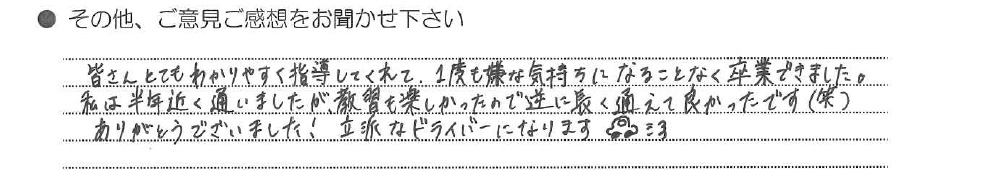 ● その他、ご意見ご感想をお聞かせ下さい
皆さんとてもわかりやすく指導してくれて、1度も嫌な気持ちになることなく卒業できました。
私は半年近く通いましたが、教習も楽しかったので逆に長く通えて良かったです(笑)
ありがとうございました! 立派なドライバーになります